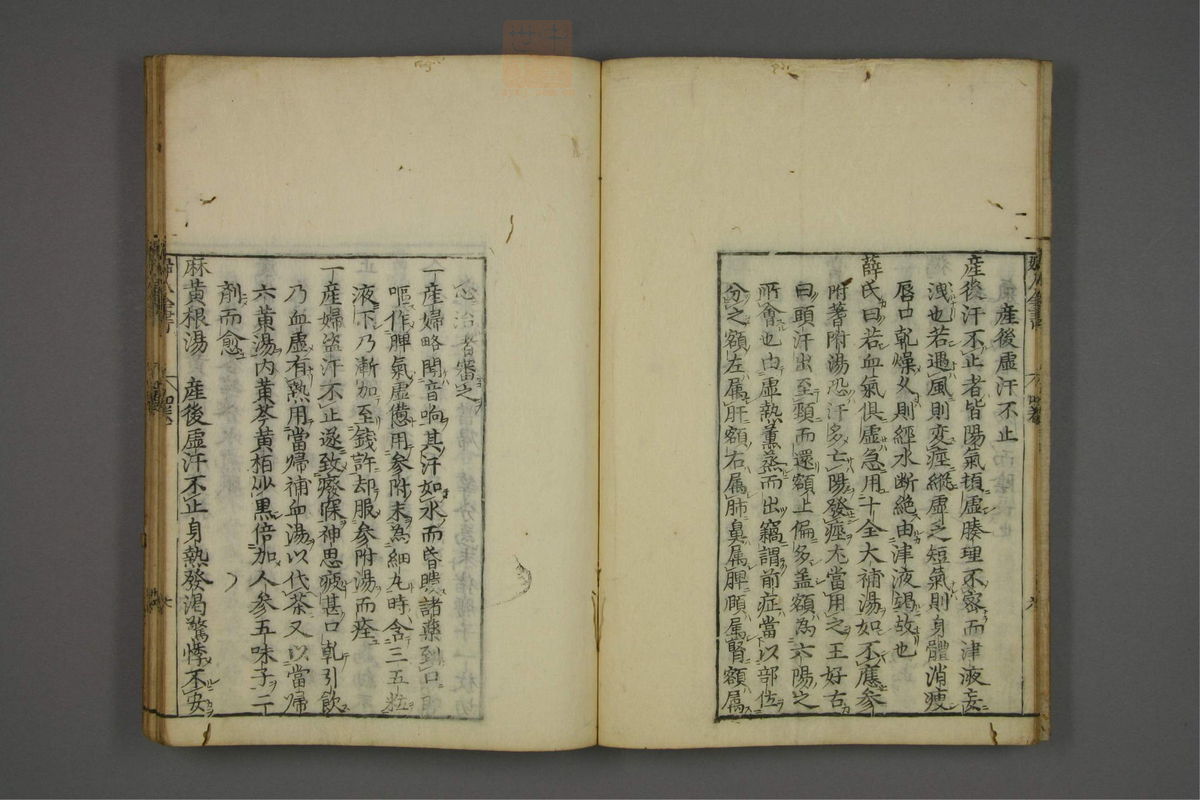 産後虚汗不止
産後汗不止者皆陽氣頓虚腠理不密而津液妄
洩也若遇風則変痙縱虚之短氣則身體消痩
唇口乹燥久則經水断絶由津液竭故也
薛氏曰若血氣俱虚急用十全大補湯如不應參
附蓍附湯恐汗多亡陽發痙尤當用之王好古
曰頭汗出至頸而還額上偏多盖額為六陽之
所會也由虚熱薫蒸而出竊謂前症當以部位
分之額左属肝額右属肺鼻属脾頤属腎額属
心治者審之
一産婦略聞音响其汗如水而昏瞆諸藥到口即
嘔作脾氣虚憊用参附末為細丸時含三五粒
液下乃漸加至錢許却服参附湯而痊
一産婦盗汗不止遂致癈寐神思疲甚口乹引飲
乃血虚有熟用當帰補血湯以代茶又以當帰
六黄湯内黄芩黄栢炒黒倍加人参五味子二
劑而愈
麻黄根湯　産後虚汗不止身熱發渇驚悸不安